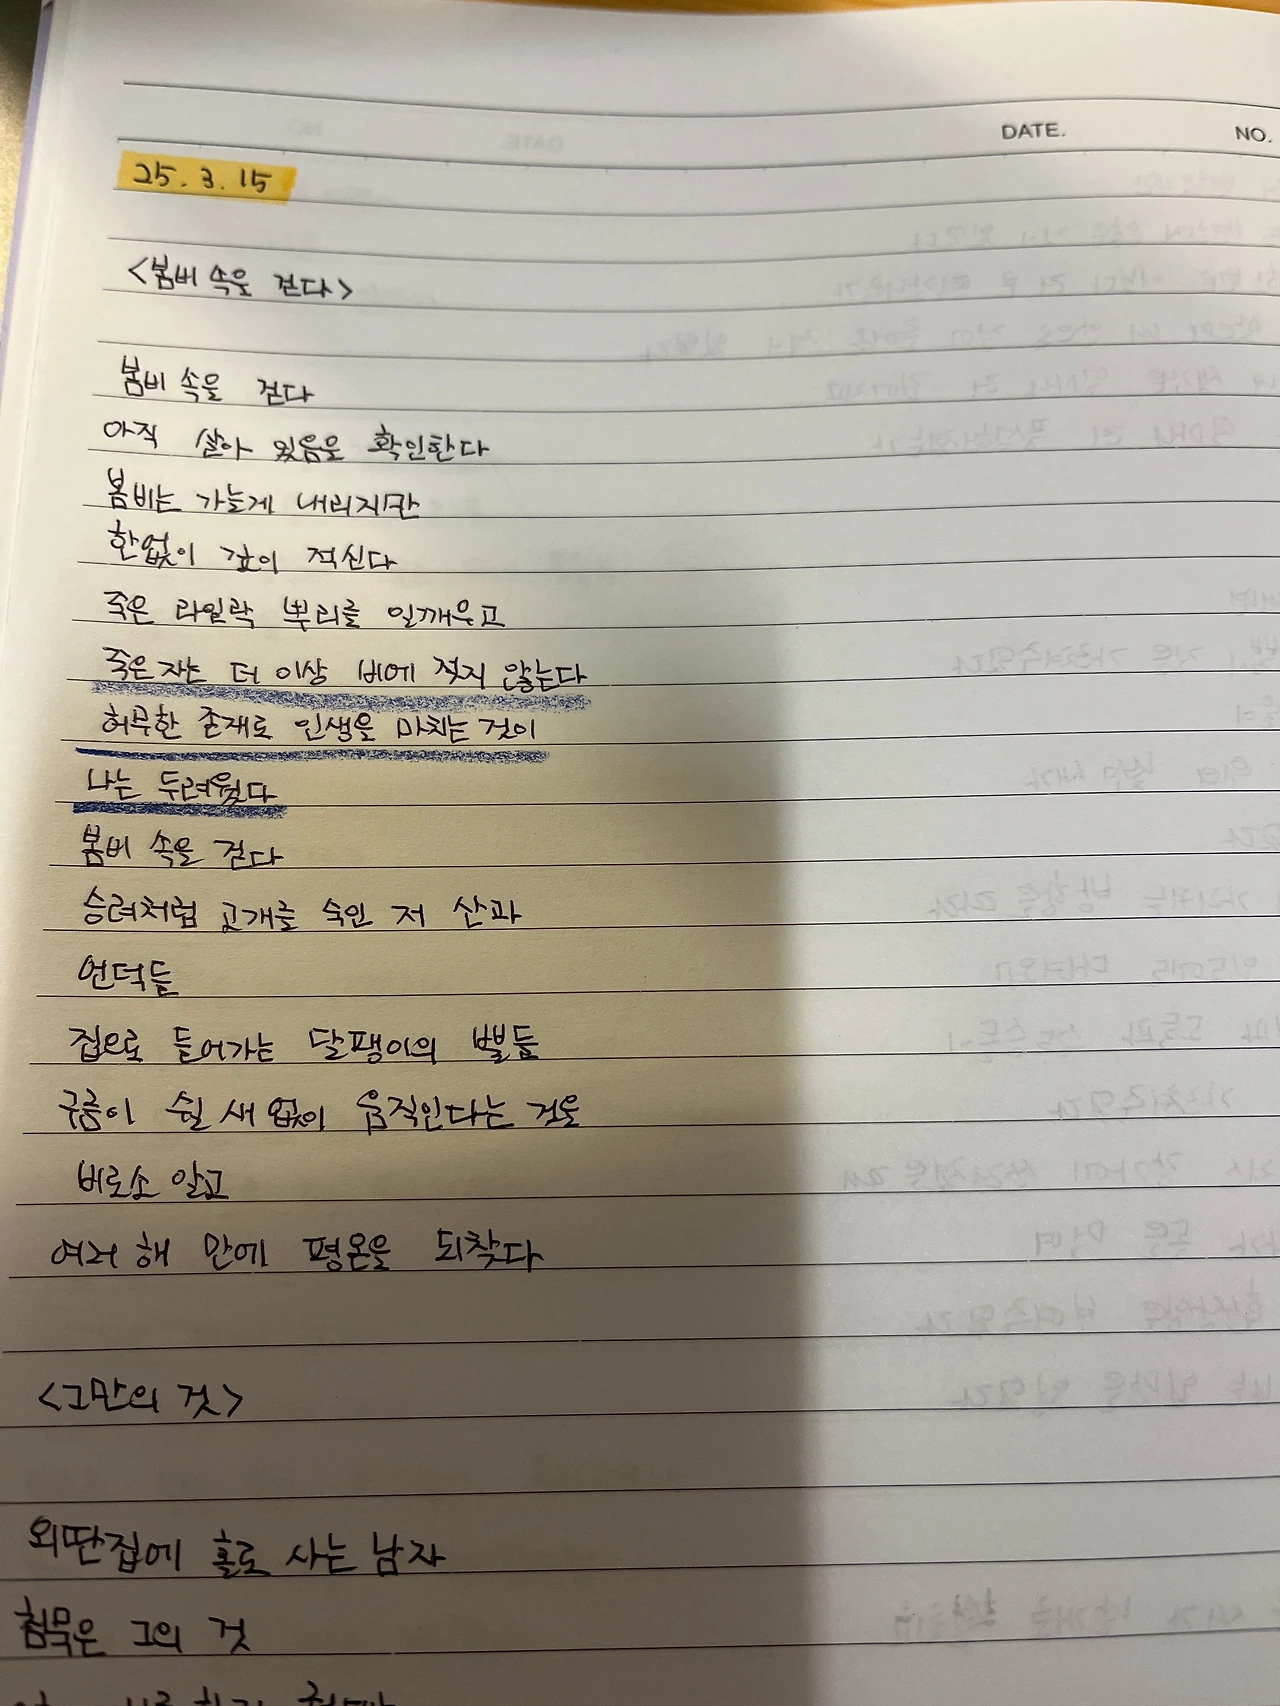 DATE. NO.
25. 3. 15
<봄비 속을 걷다>
봄비 속을 걷다
아직 살아 있음을 확인한다
봄비는 가늘게 내리지만
한없이 깊이 적신다
죽은 라일락 뿌리를 일깨우고
죽은 자는 더 이상 비에 젖지 않는다
허무한 존재로 인생을 마치는 것이
나는 두려웠다
봄비 속을 걷다
승려처럼 고개를 숙인 저 산과
언덕들
집으로 들어가는 달팽이의 뿔들
구름이 쉴 새 없이 움직인다는 것을
비로소 알고
여러 해 만에 평온을 되찾다
<그만의 것>
외딴집에 홀로 사는 남자
침묵은 그의 것